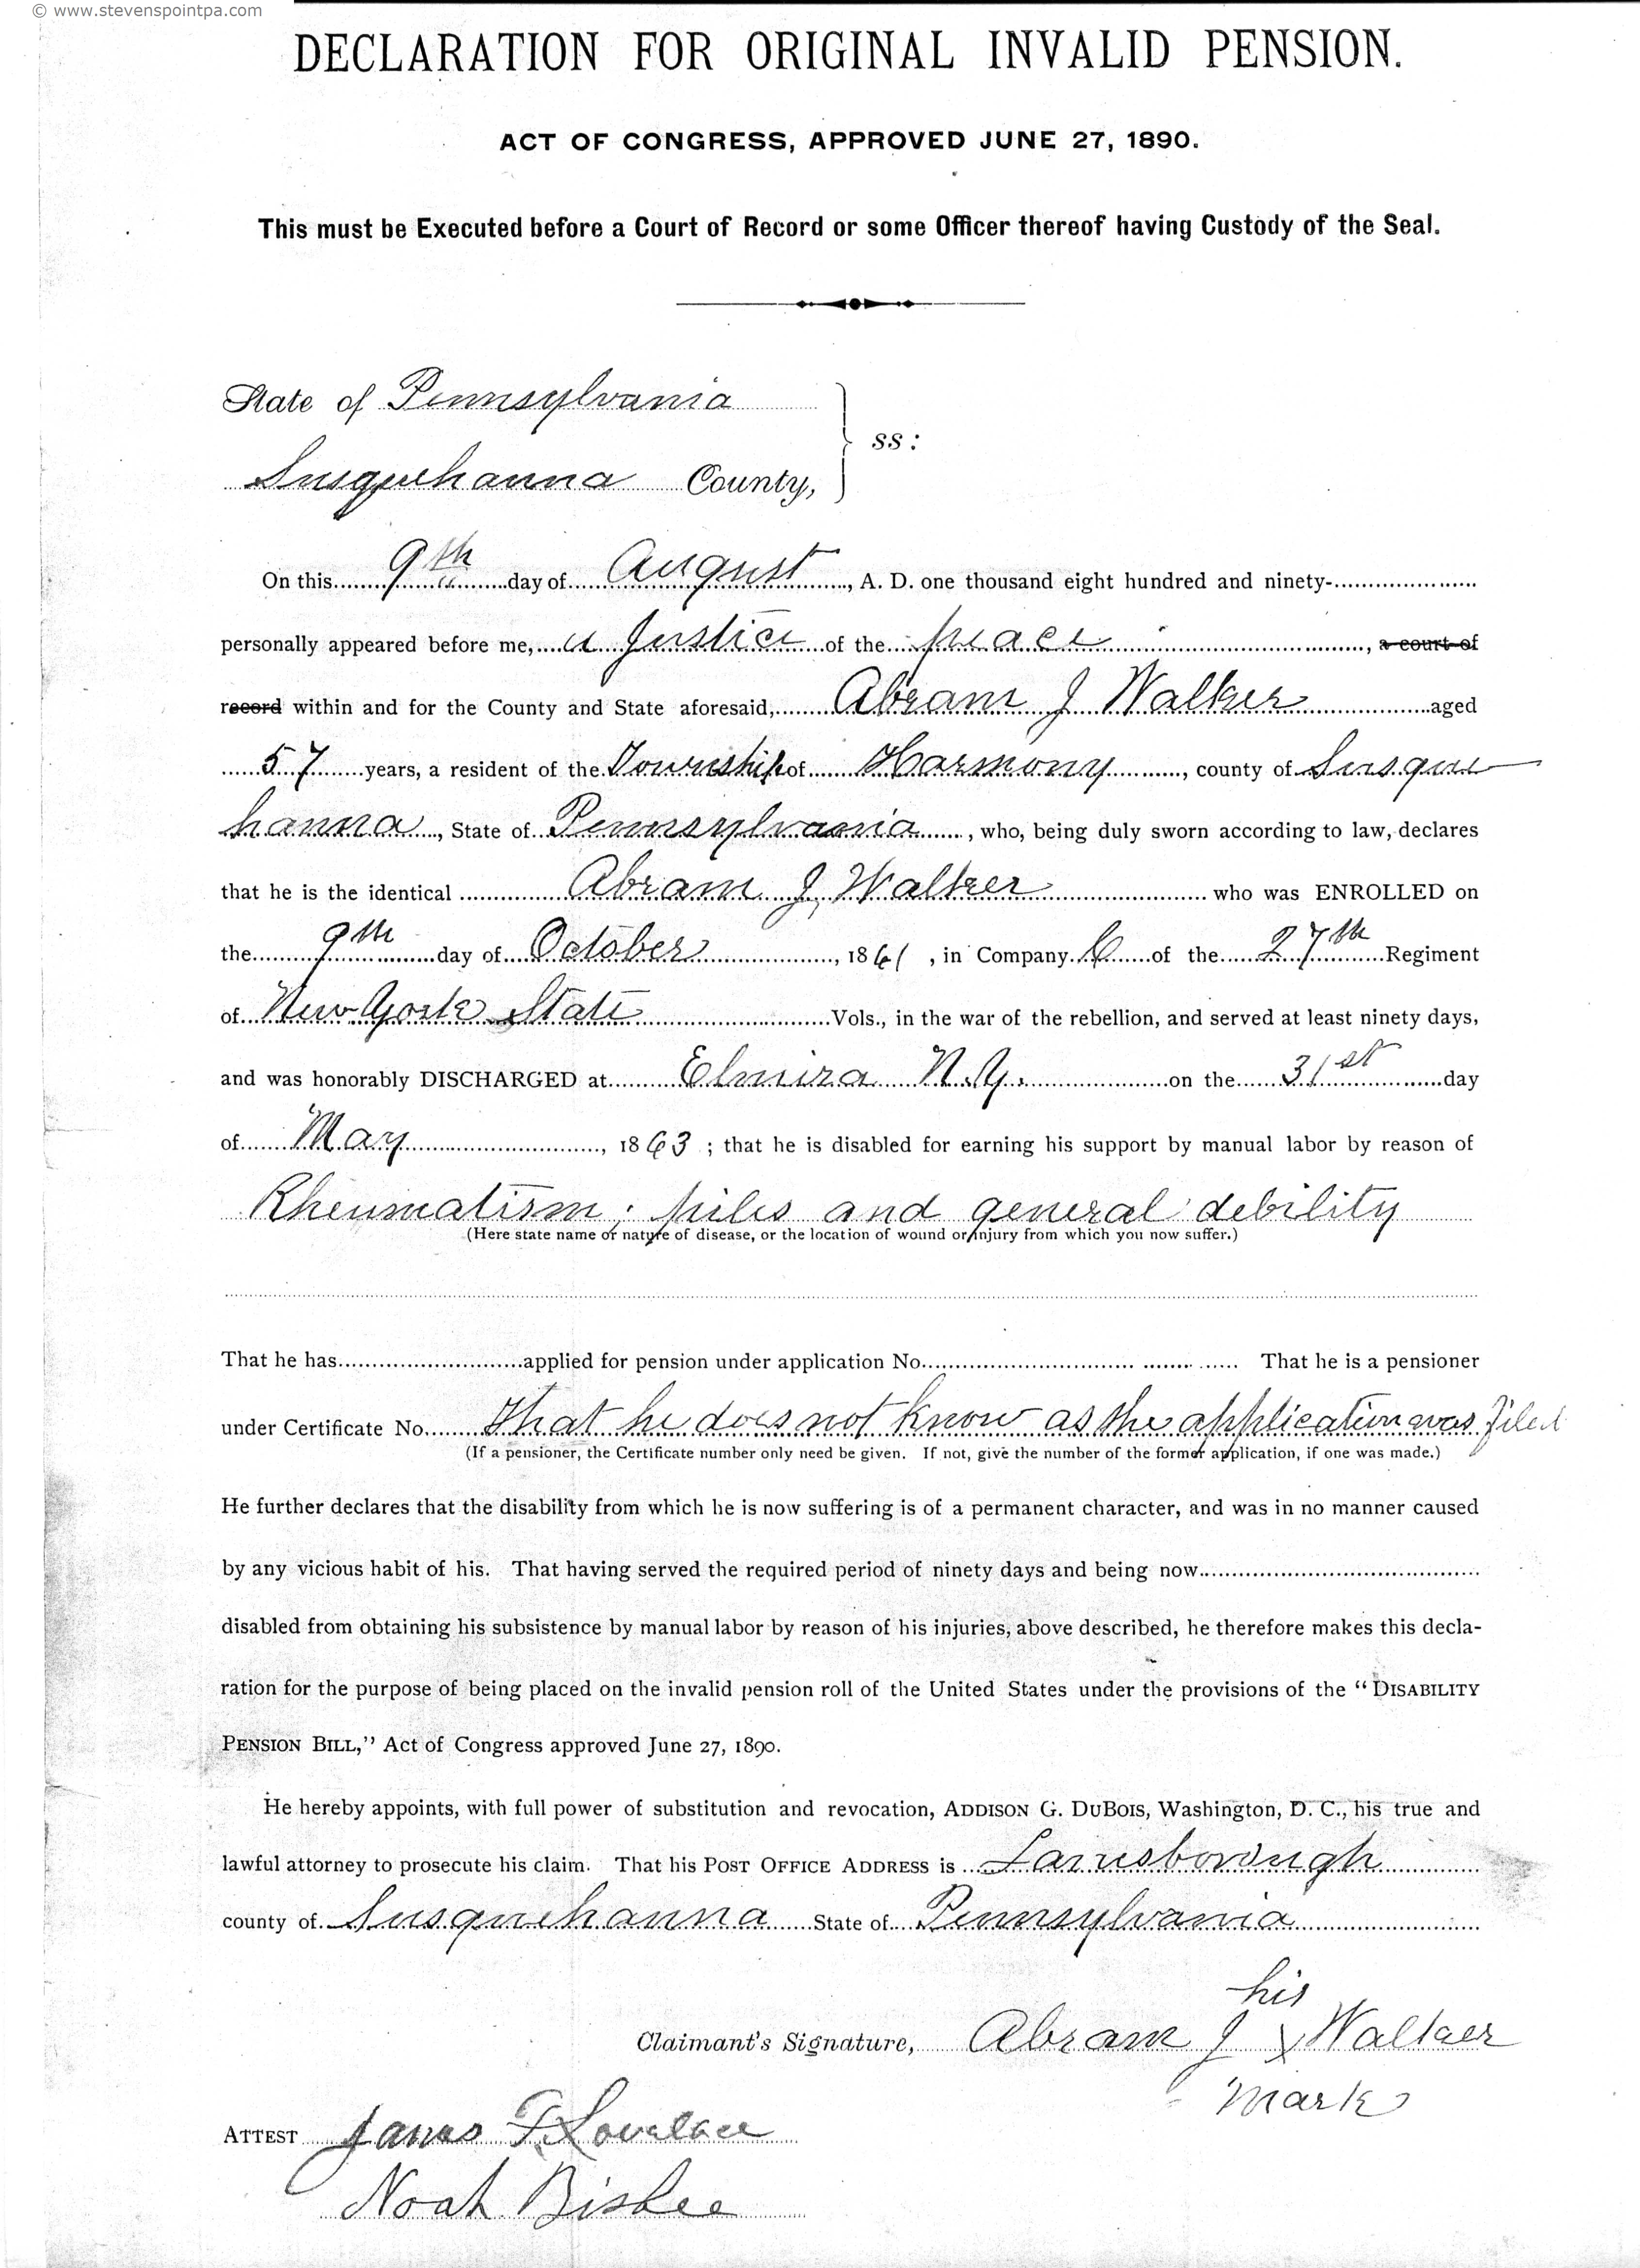 © www.stevenspointpa.com
DECLARATION FOR ORIGINAL INVALID PENSION.
ACT OF CONGRESS, APPROVED JUNE 27, 1890.
This must be Executed before a Court of Record or some Officer thereof having Custody of the Seal.
State of Pennsylvania
ss:
Susquehanna County,
On this 9th day of August, A. D. one thousand eight hundred and ninety-
personally appeared before me, a Justice of the peace, a court of
record within and for the County and State aforesaid, Abram J Walker aged
57 years, a resident of the Township of Harmony, county of Susque
hanna, State of Pennsylvania, who, being duly sworn according to law, declares
that he is the identical Abram J Walker who was ENROLLED on
the 9th day of October, 1861, in Company C of the 27th Regiment
of New York State Vols., in the war of the rebellion, and served at least ninety days,
and was honorably DISCHARGED at Elmira N.Y. on the 31st day
of May, 1863; that he is disabled for earning his support by manual labor by reason of
Rheumatism; piles and general debility
(Here state name or nature of disease, or the location of wound or injury from which you now suffer.)
That he has applied for pension under application No. That he is a pensioner
under Certificate No. that he does not know as the application was filed
(If a pensioner, the Certificate number only need be given. If not, give the number of the former application, if one was made.)
He further declares that the disability from which he is now suffering is of a permanent character, and was in no manner caused
by any vicious habit of his. That having served the required period of ninety days and being now
disabled from obtaining his subsistence by manual labor by reason of his injuries, above described, he therefore makes this decla-
ration for the purpose of being placed on the invalid pension roll of the United States under the provisions of the "DISABILITY
PENSION BILL," Act of Congress approved June 27, 1890.
He hereby appoints, with full power of substitution and revocation, ADDISON G. DUBOIS, Washington, D. C., his true and
lawful attorney to prosecute his claim. That his POST OFFICE ADDRESS is Lanesborough
county of Susquehanna State of Pennsylvania
his
Claimant's Signature, Abram J X Walker
mark
ATTEST James F. Lovelace
Noah Bisbee